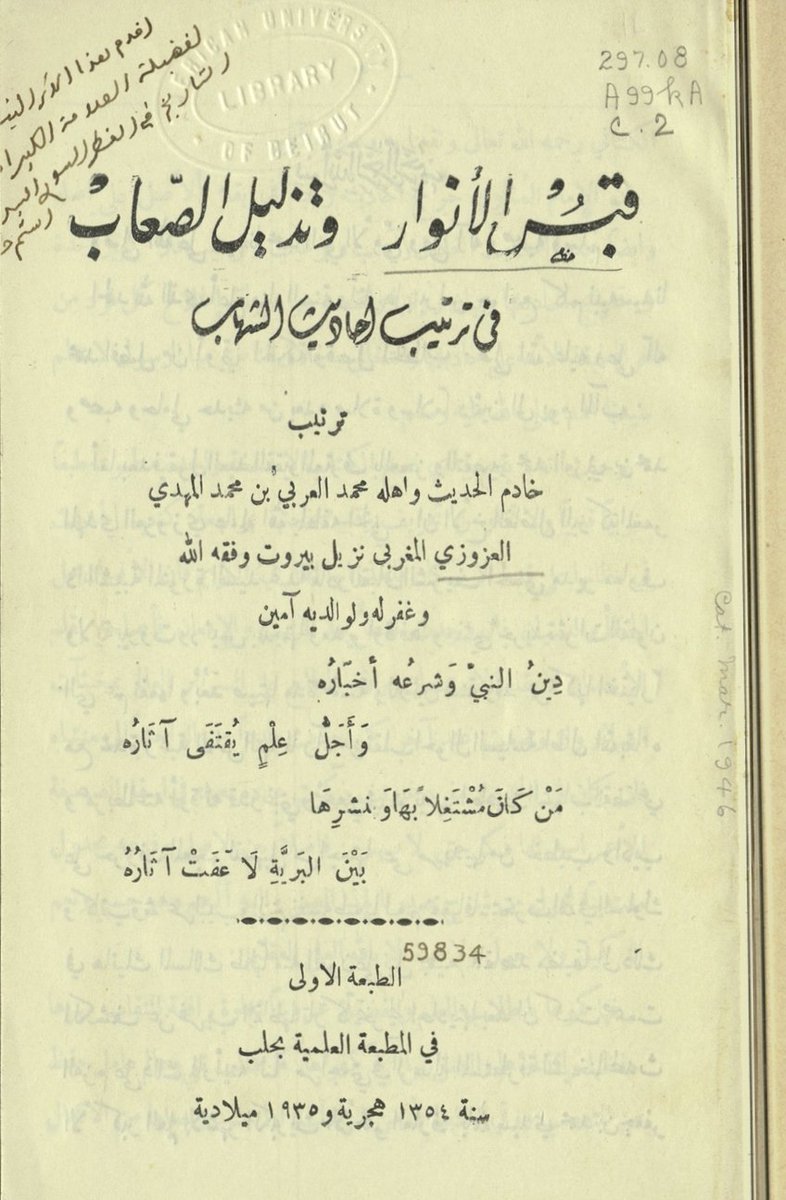 اقدم هذا الأثر
لفضيلة العلامة الكبير
التاريخ في القطر السوري
AMERICAN UNIVERSITY
LIBRARY
OF BEIRUT
297.08
A99kA
C.2
قبسُ الأنوار وتذليل الصّعابْ
في ترتيب احاديث الشهاب
ترتيب
خادم الحديث واهله محمد العربي بن محمد المهدي
العزوزي المغربي نزيل بيروت وفقه الله
وغفر له ولوالديه آمين
دِينُ النبيّ وَشرعُه أخبَارُه
وَأَجَلُّ عِلْمٍ يُقتَفَى آثَارُه
مَنْ كَانَ مُشْتَغِلاً بهَا وَ نشرِهَا
بَيْنَ البَرِيَّةِ لَا عَفَتْ آثَارُهُ
59834
الطبعة الاولى
في المطبعة العلمية بحلب
سنة ١٣٥٤ هجرية و ١٩٣٥ ميلادية
Cat. Mar. 1946